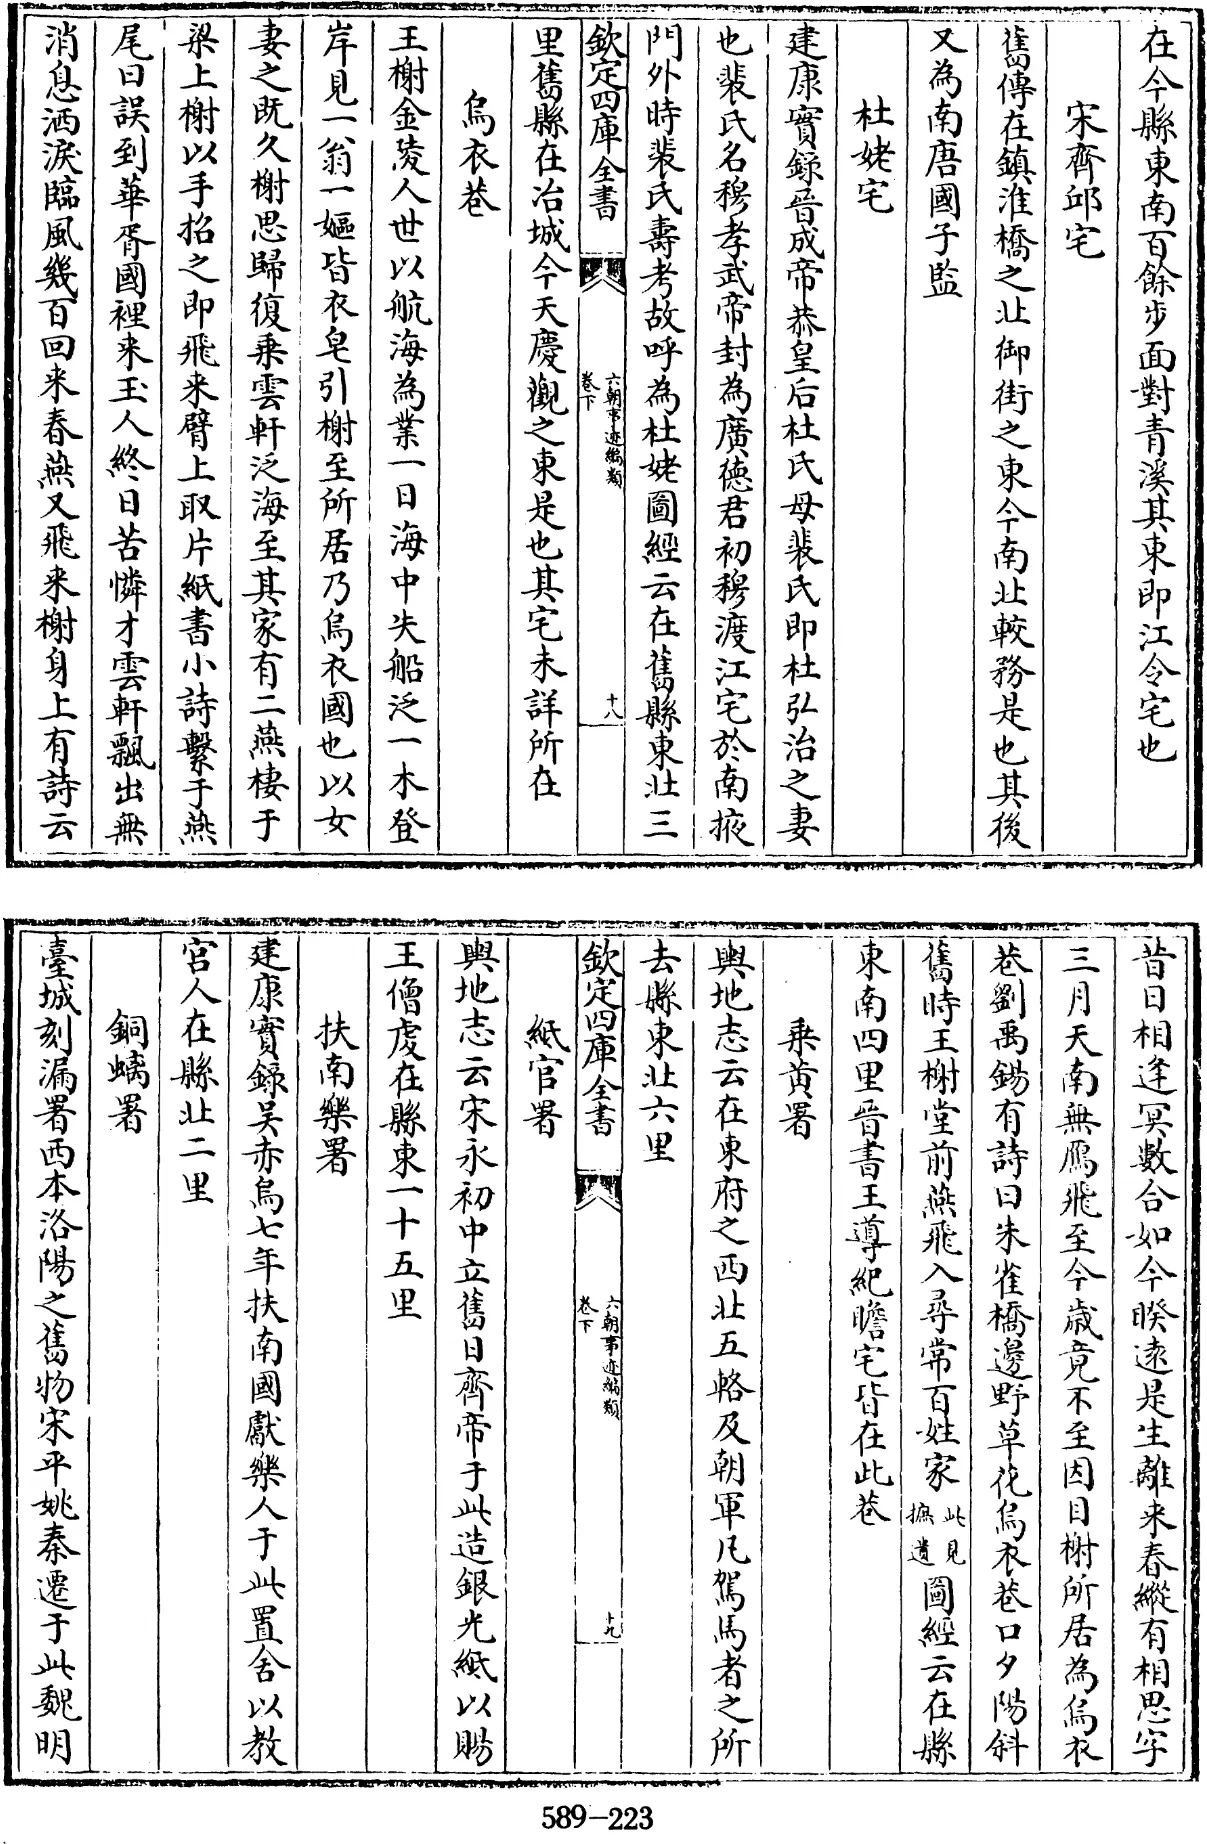 在今縣東南百餘步面對青溪其東即江令宅也
宋齊邱宅
舊傳在鎮淮橋之北御街之東今南北較務是也其後
又為南唐國子監
杜姥宅
建康實錄晉成帝恭皇后杜氏母裴氏即杜弘治之妻
也裴氏名穆孝武帝封為廣德君初穆渡江宅於南掖
門外時裴氏壽考故呼為杜姥圖經云在舊縣東北三
欽定四庫全書
六朝事迹編類
卷下
十八
里舊縣在冶城今天慶觀之東是也其宅未詳所在
烏衣巷
王榭金陵人世以航海為業一日海中失船泛一木登
岸見一翁一嫗皆衣皂引榭至所居乃烏衣國也以女
妻之既久榭思歸復乗雲軒泛海至其家有二燕棲于
梁上榭以手招之即飛來臂上取片紙書小詩繫于燕
尾曰誤到華胥國裡来玉人終日苦憐才雲軒飄出無
消息洒淚臨風幾百回来春燕又飛来榭身上有詩云
昔日相逢冥數合如今暌遠是生離来春縱有相思字
三月天南無鴈飛至今歲竟不至因目榭所居為烏衣
巷劉禹錫有詩曰朱雀橋邊野草花烏衣巷口夕陽斜
舊時王榭堂前燕飛入尋常百姓家此見摭遺圖經云在縣
東南四里晉書王導紀瞻宅皆在此巷
乗黃署
輿地志云在東府之西北五輅及朝軍凡駕馬者之所
去縣東北六里
欽定四庫全書
六朝事迹編類
卷下
十九
紙官署
輿地志云宋永初中立舊日齊帝于此造銀光紙以賜
王僧虔在縣東一十五里
扶南樂署
建康實錄吳赤烏七年扶南國獻樂人于此置舍以教
宮人在縣北二里
銅螭署
臺城刻漏署西本洛陽之舊物宋平姚秦遷于此魏明
589-223